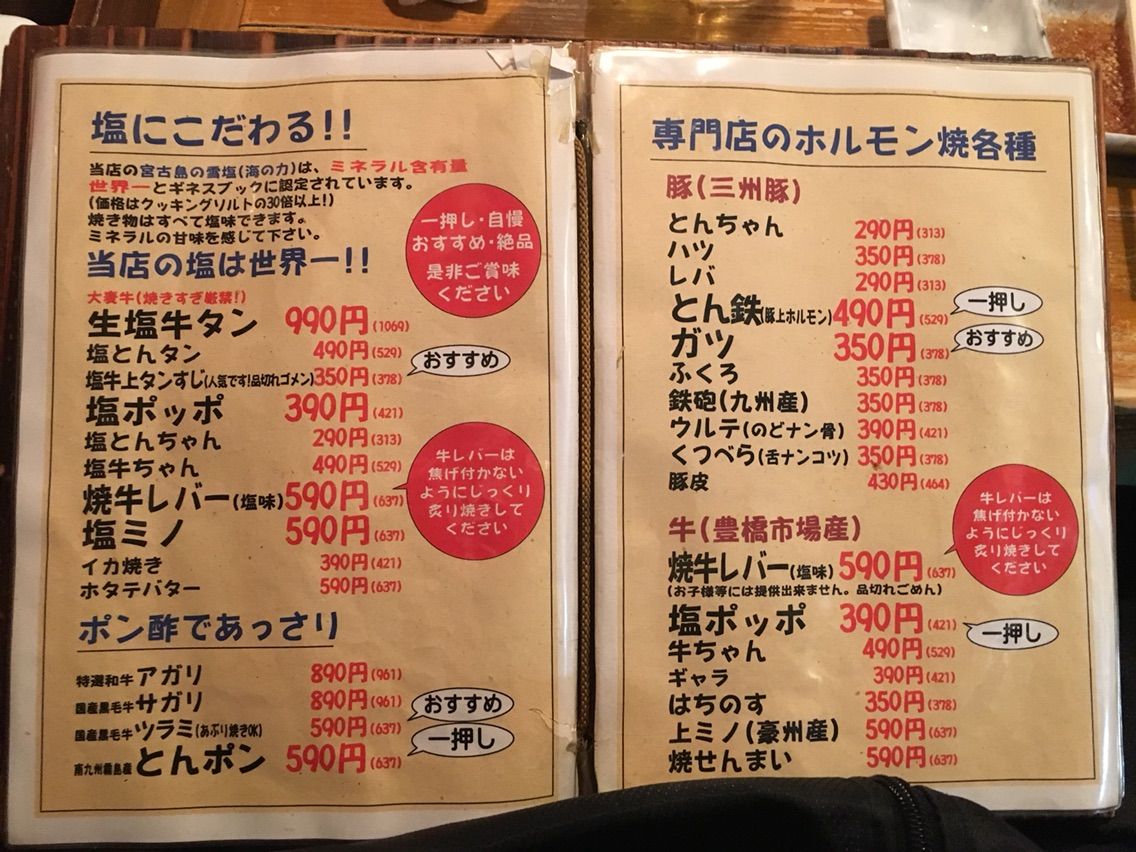 塩にこだわる!!
当店の宮古島の雪塩(海の力)は、ミネラル含有量
世界一とギネスブックに認定されています。
(価格はクッキングソルトの30倍以上!)
焼き物はすべて塩味できます。
ミネラルの甘味を感じて下さい。
一押し・自慢
おすすめ・絶品
是非ご賞味
ください
当店の塩は世界一!!
大麦牛(焼きすぎ厳禁!)
生塩牛タン 990円(1069)
塩とんタン 490円(529)
おすすめ
塩牛上タンすじ(人気です!品切れゴメン)350円(378)
塩ポッポ 390円(421)
塩とんちゃん 290円(313)
塩牛ちゃん 490円(529)
焼牛レバー(塩味)590円(637)
牛レバーは
焦げ付かない
ようにじっくり
炙り焼きして
ください
塩ミノ 590円(637)
イカ焼き 390円(421)
ホタテバター 590円(637)
ポン酢であっさり
特選和牛アガリ 890円(961)
国産黒毛牛サガリ 890円(961)
国産黒毛牛ツラミ(あぶり焼きOK) 590円(637)
おすすめ
南九州霧島産とんポン 590円(637)
一押し
専門店のホルモン焼各種
豚(三州豚)
とんちゃん 290円(313)
ハツ 350円(378)
レバ 290円(313)
とん鉄(豚上ホルモン)490円(529)
一押し
ガツ 350円(378)
おすすめ
ふくろ 350円(378)
鉄砲(九州産) 350円(378)
ウルテ(のどナン骨) 390円(421)
くつべら(舌ナンコツ) 350円(378)
豚皮 430円(464)
牛(豊橋市場産)
焼牛レバー(塩味) 590円(637)
(お子様等には提供出来ません。品切れごめん)
牛レバーは
焦げ付かない
ようにじっくり
炙り焼きして
ください
塩ポッポ 390円(421)
一押し
牛ちゃん 490円(529)
ギャラ 390円(421)
はちのす 350円(378)
上ミノ(豪州産) 590円(637)
焼せんまい 590円(637)